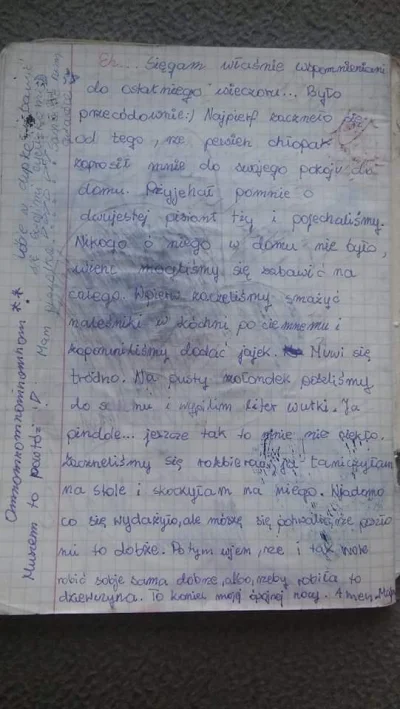 Eh... Sięgam właśnie wspomnieniami
do ostatniego wieczoru... Było
przecódownie:) Najpierf zaczneło się
od tego, rze pewien chłopak
zaprosił mnie do swojego pokoju do
domu. Przyjehał pomnie o
dwujestej piziont tży i pojechaliśmy.
Nikogo ó niego w domu nie było,
wienc mogliśmy się zabawić na
całego. Wpierw zaczeliśmy smażyć
naleśniki w kóchni po ciemnemu i
zapomnikliśmy dodać jajek. Muwi się
tródno. Na pusty rzołondek poszliśmy
do i wypilim liter wutki. Ja
pindole... jeszcze tak to mnie nie piekło.
Zaczneliśmy się rozbierać ja tańczyłam
na stole i skoczyłam na niego. Njadomo
co się wydażyło, ale mószę się pohwalić, rze poszło
mi to dobże. Potym wjem, rze i tak wole
robić sobje sama dobrze, albo, rzeby robiła to
dziewczyna. To koniec mojej ójnej nocy. Amen.
Omnomnomnomnomnom **
Muszem to powtóżć :D
Mam